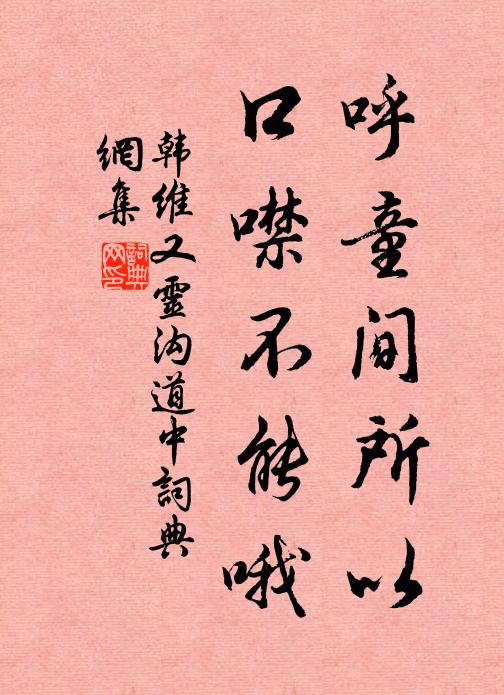 呼童间所以
口噤不能哦
韩维又靈沟道中詞典
網集
詞典
网印